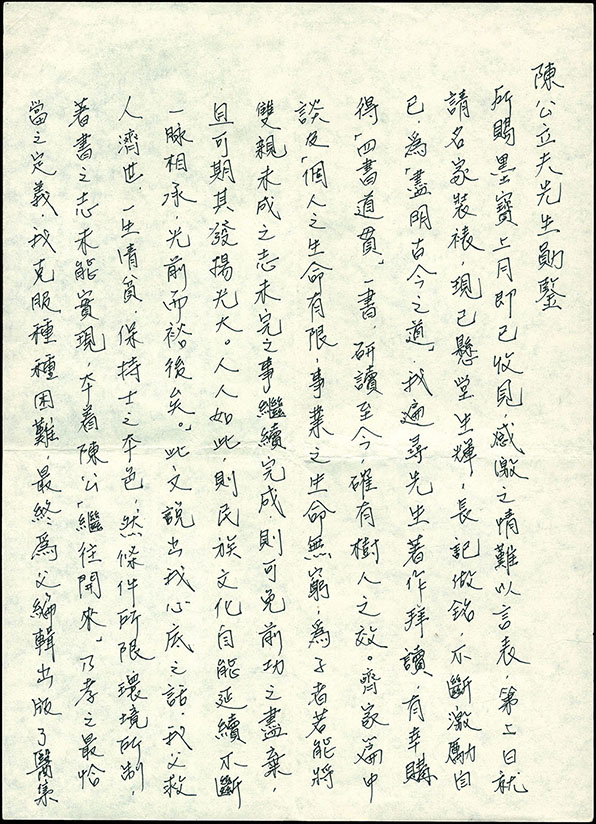 陳公立夫先生勛鑒
所賜墨寶上月即已收見，感激之情難以言表，第二日就
請名家裝裱，現已懸堂生輝，長記做銘，不斷激勵自
已為「盡明古今之道」，我遍尋先生著作拜讀，有幸購
得「四書道貫」一書，研讀至今，確有樹人之效。齊家篇中
談及「個人之生命有限，事業之生命無窮，為子者若能將
雙親未成之志未完之事繼續完成，則可免前功之盡棄，
且可期其發揚光大。人人如此則民族文化自能延續不斷
一脉相承，光前而裕後矣。」此文說出我心底之話，我父救
人濟世一生清貧，保持士之本色，然條件所限環境所制，
著書之志未能實現，本着陳公「繼往開來」乃孝之最恰
當之定義，我克服種種困難，最終為父編輯出版了醫案